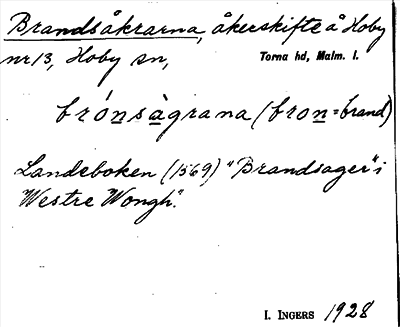 Brandsåkrarna, åkerskifte å Hoby
nr 13, Hoby sn, Torna hd, Malm. l.
brónsàgrana (bron = brand)
Landeboken (1569) "Brandsager" i
Westre Wongh".
I. INGERS 1928